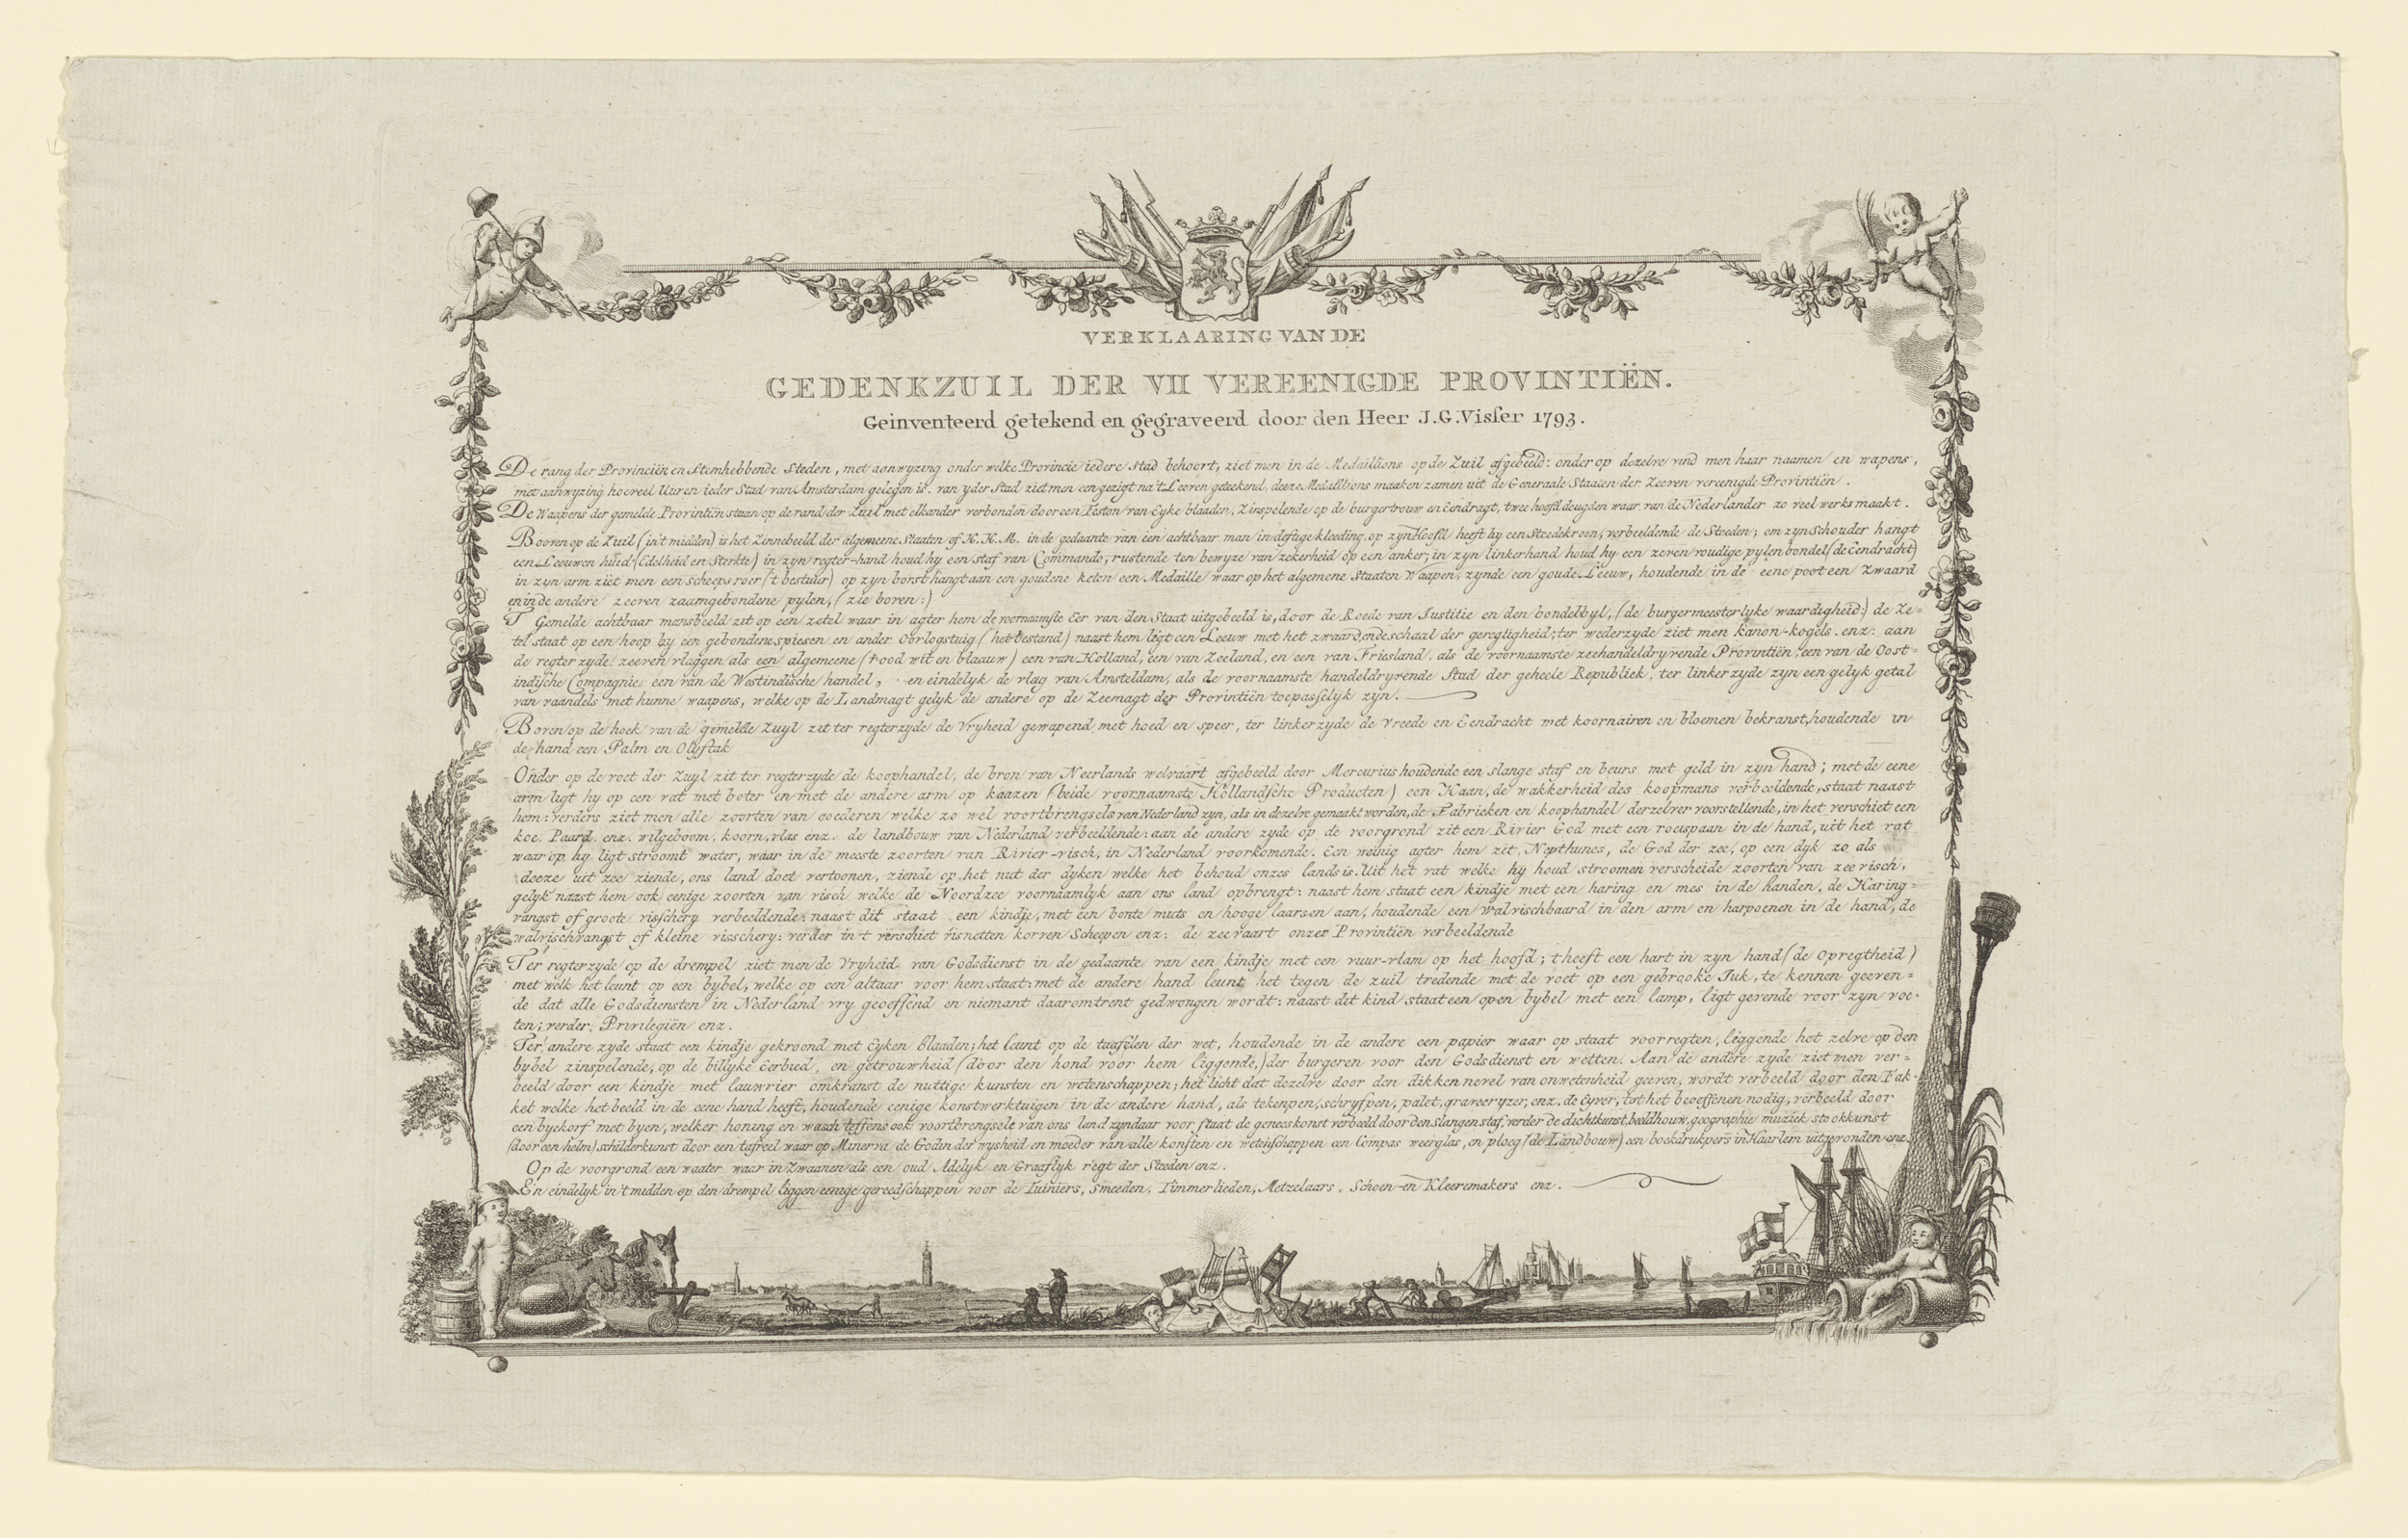 VERKLAARING VAN DE
GEDENKZUIL DER VII VEREENIGDE PROVINTIËN.
Geinventeerd getekend en gegraveerd door den Heer J.G. Visser 1793.
De rang der Provinciën en Stemhebbende Steden, met aanwyzing onder welke Provincie iedere stad behoort, ziet men in de Medaillions op de Zuil afgebeeld: onder op dezelve vind men haar naamen en wapens,
met aanwyzing hoeveel Uuren ieder Stad van Amsterdam gelegen is. van yder Stad ziet men een gezigt na't Leeven getekend, deeze Medaillions maaken zamen uit de Generaale Staaten der Zeeven vereenigde Provintiën.
De Waapens der gemelde Provintiën staan op de rand der Zuil met elkander verbonden door een Feston van Eyke blaaden, Zinspelende op de burgertrouw en Eendragt, twee hoofd deugden waar van de Nederlander zo veel werks maakt.
Booven op de Zuil (in't midden) is het Zinnebeeld der algemeene Staaten of H.H.M. in de gedaante van een achtbaar man in deftige kleeding, op zyn Hoofd heeft hy een Steedekroon, verbeeldende de Steeden; om zyn Schouder hangt
een Leeuwen huid (Edelheid en Sterkte) in zyn regter-hand houd hy een staf van Commando, rustende ten bewyze van zekerheid op een anker; in zyn linkerhand houd hy een zeven voudige pylen bondel (de Eendracht)
in zyn arm ziet men een scheeps roer ('t bestuur) op zyn borst hangt aan een goudene keten een Medaille waar op het algemene Staaten Waapen, zynde een goude Leeuw, houdende in de eene poot een Zwaard
en in de andere zeeven zaamgebondene pylen, (zie boven:)
Gemelde achtbaar mansbeeld zit op een zetel waar in agter hem de voornaamste Eer van den Staat uitgebeeld is, door de Roede van Justitie en den bondelbyl, (de burgermeesterlyke waardigheid:) de Ze=
tel staat op een hoop by een gebondene spiesen en ander Oorlogstuig (het bestand) naast hem ligt een Leeuw met het zwaard en de schaal der geregtigheid; ter wederzyde ziet men kanon-kogels. enz: aan
de regter zyde zeeven vlaggen als een algemeene (rood wit en blaauw) een van Holland, een van Zeeland, en een van Friesland, als de voornaamste zeehandeldryvende Provintiën, een van de Oost=
indische Compagnie een van de Westindische handel, en eindelyk de vlag van Amsteldam, als de voornaamste handeldryvende Stad der geheele Republiek, ter linker zyde zyn een gelyk getal
van vaandels met hunne waapens, welke op de Landmagt gelyk de andere op de Zeemagt der Provintiën toepasselyk zyn.
Boven op de hoek van de gemelde Zuyl zit ter regterzyde de Vryheid gewapend met hoed en speer, ter linkerzyde de vreede en Eendracht met koornairen en bloemen bekranst, houdende in
de hand een Palm en Olyftak
Onder op de voet der Zuyl zit ter regterzyde de koophandel, de bron van Neerlands welvaart afgebeeld door Mercurius houdende een slange staf en beurs met geld in zyn hand; met de eene
arm ligt hy op een vat met boter en met de andere arm op kaazen (beide voornaamste Hollandsche Producten) een Haan, de wakkerheid des koopmans verbeeldende, staat naast
hem: verders ziet men alle zoorten van goederen welke zo wel voortbrengsels van Nederland zyn, als in dezelve gemaakt worden, de Fabrieken en koophandel derzelver voorstellende, in het verschiet een
koe, Paard, enz. wilgeboom, koorn, vlas enz. de landbouw van Nederland verbeeldende: aan de andere zyde op de voorgrond zit een Rivier God met een roeispaan in de hand, uit het vat
waar op, hy ligt stroomt water, waar in de meeste zoorten van Rivier-visch, in Nederland voorkomende. Een weinig agter hem zit, Nepthunes, de God der zee, op een dyk zo als
deeze uit zee ziende, ons land doet vertoonen, ziende op het nut der dyken welke het behoud onzes lands is. Uit het vat welke hy houd stroomen verscheide zoorten van zee visch,
gelyk naast hem ook eenige zoorten van visch welke de Noordzee voornaamlyk aan ons land opbrengt: naast hem staat een kindje met een haring en mes in de handen, de Haring=
vangst of groote visschery verbeeldende: naast dit staat een kindje, met een bonte muts en hooge laarsen aan, houdende een Walvischbaard in den arm en harpoenen in de hand, de
walvischvangst of kleine visschery: verder in't verschiet visnetten korven Scheepen enz: de zeevaart onzer Provintiën verbeeldende
Ter regterzyde op de drempel ziet men de Vryheid van Godsdienst in de gedaante van een kindje met een vuur-vlam op het hoofd; 't heeft een hart in zyn hand (de Opregtheid)
met welk het leunt op een bybel, welke op een altaar voor hem staat: met de andere hand leunt het tegen de zuil tredende met de voet op een gebrooke Juk, te kennen geeven=
de dat alle Godsdiensten in Nederland vry geoeffend en niemant daaromtrent gedwongen wordt: naast dit kind staat een open bybel met een lamp, ligt gevende voor zyn voe=
ten; verder Privilegiën enz.
Ter andere zyde staat een kindje gekroond met Eyken blaaden; het leunt op de taafelen der wet, houdende in de andere een papier waar op staat voorregten, liggende het zelve op den
bybel zinspelende, op de billyke Eerbied, en getrouwheid (door den hond voor hem liggende,) der burgeren voor den Godsdienst en wetten. Aan de andere zyde ziet men ver=
beeld door een kindje met lauwrier omkranst de nuttige kunsten en wetenschappen; het licht dat dezelve door den dikken nevel van onwetenheid geeven, wordt verbeeld door den Fak=
kel welke het beeld in de eene hand heeft, houdende eenige konstwerktuigen in de andere hand, als tekenpen, schryfpen, palet, graveeryzer, enz. de Eyver, tot het beoeffenen nodig, verbeeld door
een byekorf met byen, welker honing en wasch teffens ook voortbrengsels van ons land zyn daar voor, staat de geneeskonst verbeeld door den slangen staf, verder de dichtkunst, beeldhouw, geographie muziek stookkunst
(door een helm) schilderkunst door een tafreel waar op Minerva de Godin der wysheid en moeder van alle konsten en wetenschappen een Compas weerglas, en ploeg (de Landbouw) een boekdrukpers in Haarlem uitgevonden enz.
Op de voorgrond een waater waar in Zwaanen als een oud Adelyk en Graaflyk regt der Steeden enz.
En eindelyk in't midden op den drempel liggen eenige gereedschappen voor de Tuiniers, Smeeden, Timmerlieden, Metzelaars, Schoen-en Kleeremakers enz.